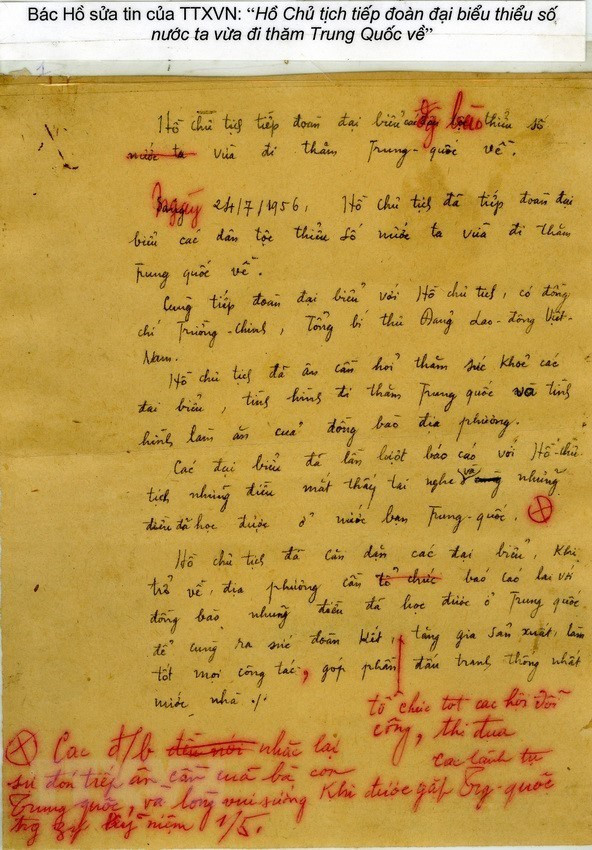 Bác Hồ sửa tin của TTXVN: “Hồ Chủ tịch tiếp đoàn đại biểu thiểu số
nước ta vừa đi thăm Trung Quốc về”
Hồ chủ tịch tiếp đoàn đại biểu đg bào thiểu số
nước ta vừa đi thăm Trung-quốc về.
Ngày 24/7/1956, Hồ chủ tịch đã tiếp đoàn đại
biểu các dân tộc thiểu số nước ta vừa đi thăm
Trung quốc về.
Cùng tiếp đoàn đại biểu với Hồ chủ tịch, có đồng
chí Trường-Chinh, Tổng bí thư Đảng Lao-động Việt-
Nam.
Hồ chủ tịch đã ân cần hỏi thăm sức khoẻ các
đại biểu, tình hình đi thăm Trung quốc và tình
hình làm ăn của đồng bào địa phương.
Các đại biểu đã lần lượt báo cáo với Hồ-chủ-
tịch những điều mắt thấy tai nghe và những
điều đã học được ở nước bạn Trung-quốc.
Hồ chủ tịch đã căn dặn các đại biểu, khi
trở về địa phương cần tổ chức báo cáo lại với
đồng bào những điều đã học được ở Trung quốc
để cùng ra sức đoàn kết, tăng gia sản xuất, làm
tốt mọi công tác, góp phần đấu tranh thống nhất
nước nhà ./.
tổ chức tốt các hội đổi
công, thi đua
Các đ/b nhắc lại
sự đón tiếp ân cần của bà con
Trung quốc, và lòng vui sướng khi được gặp các lãnh tụ Trg-quốc
trg kỷ niệm 1/5.